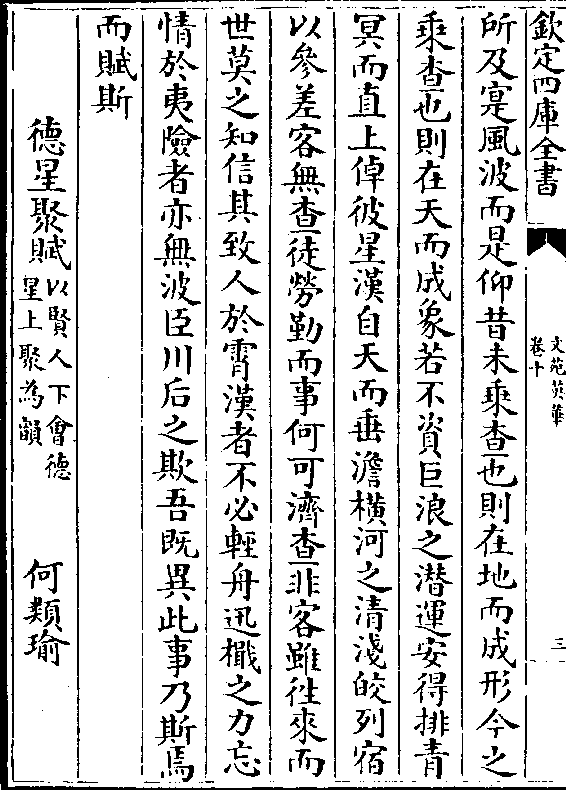 欽定四庫全書
文苑英華
卷十
三
所及寔風波而是仰昔未乘查也則在地而成形今之
乘查也則在天而成象若不資巨浪之潛運安得排青
冥而直上倬彼星漢自天而垂澹橫河之清淺皎列宿
以參差客無查徒勞勤而事何可濟查非客雖徃來而
世莫之知信其致人於霄漢者不必輕舟迅檝之力忘
情於夷險者亦無波臣川后之欺吾既異此事乃斯焉
而賦斯
德星聚賦以賢人下會德
星上聚為韻
何類瑜